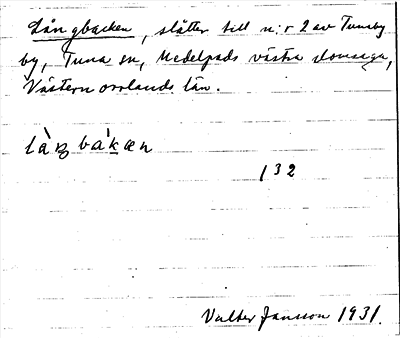 Långbacken, slåtter till n:r 2 av Tunaby
by, Tuna sn, Medelpads västra domsaga,
Västernorrlands län.
là̀ŋbákæn
132
Valter Jansson 1931.